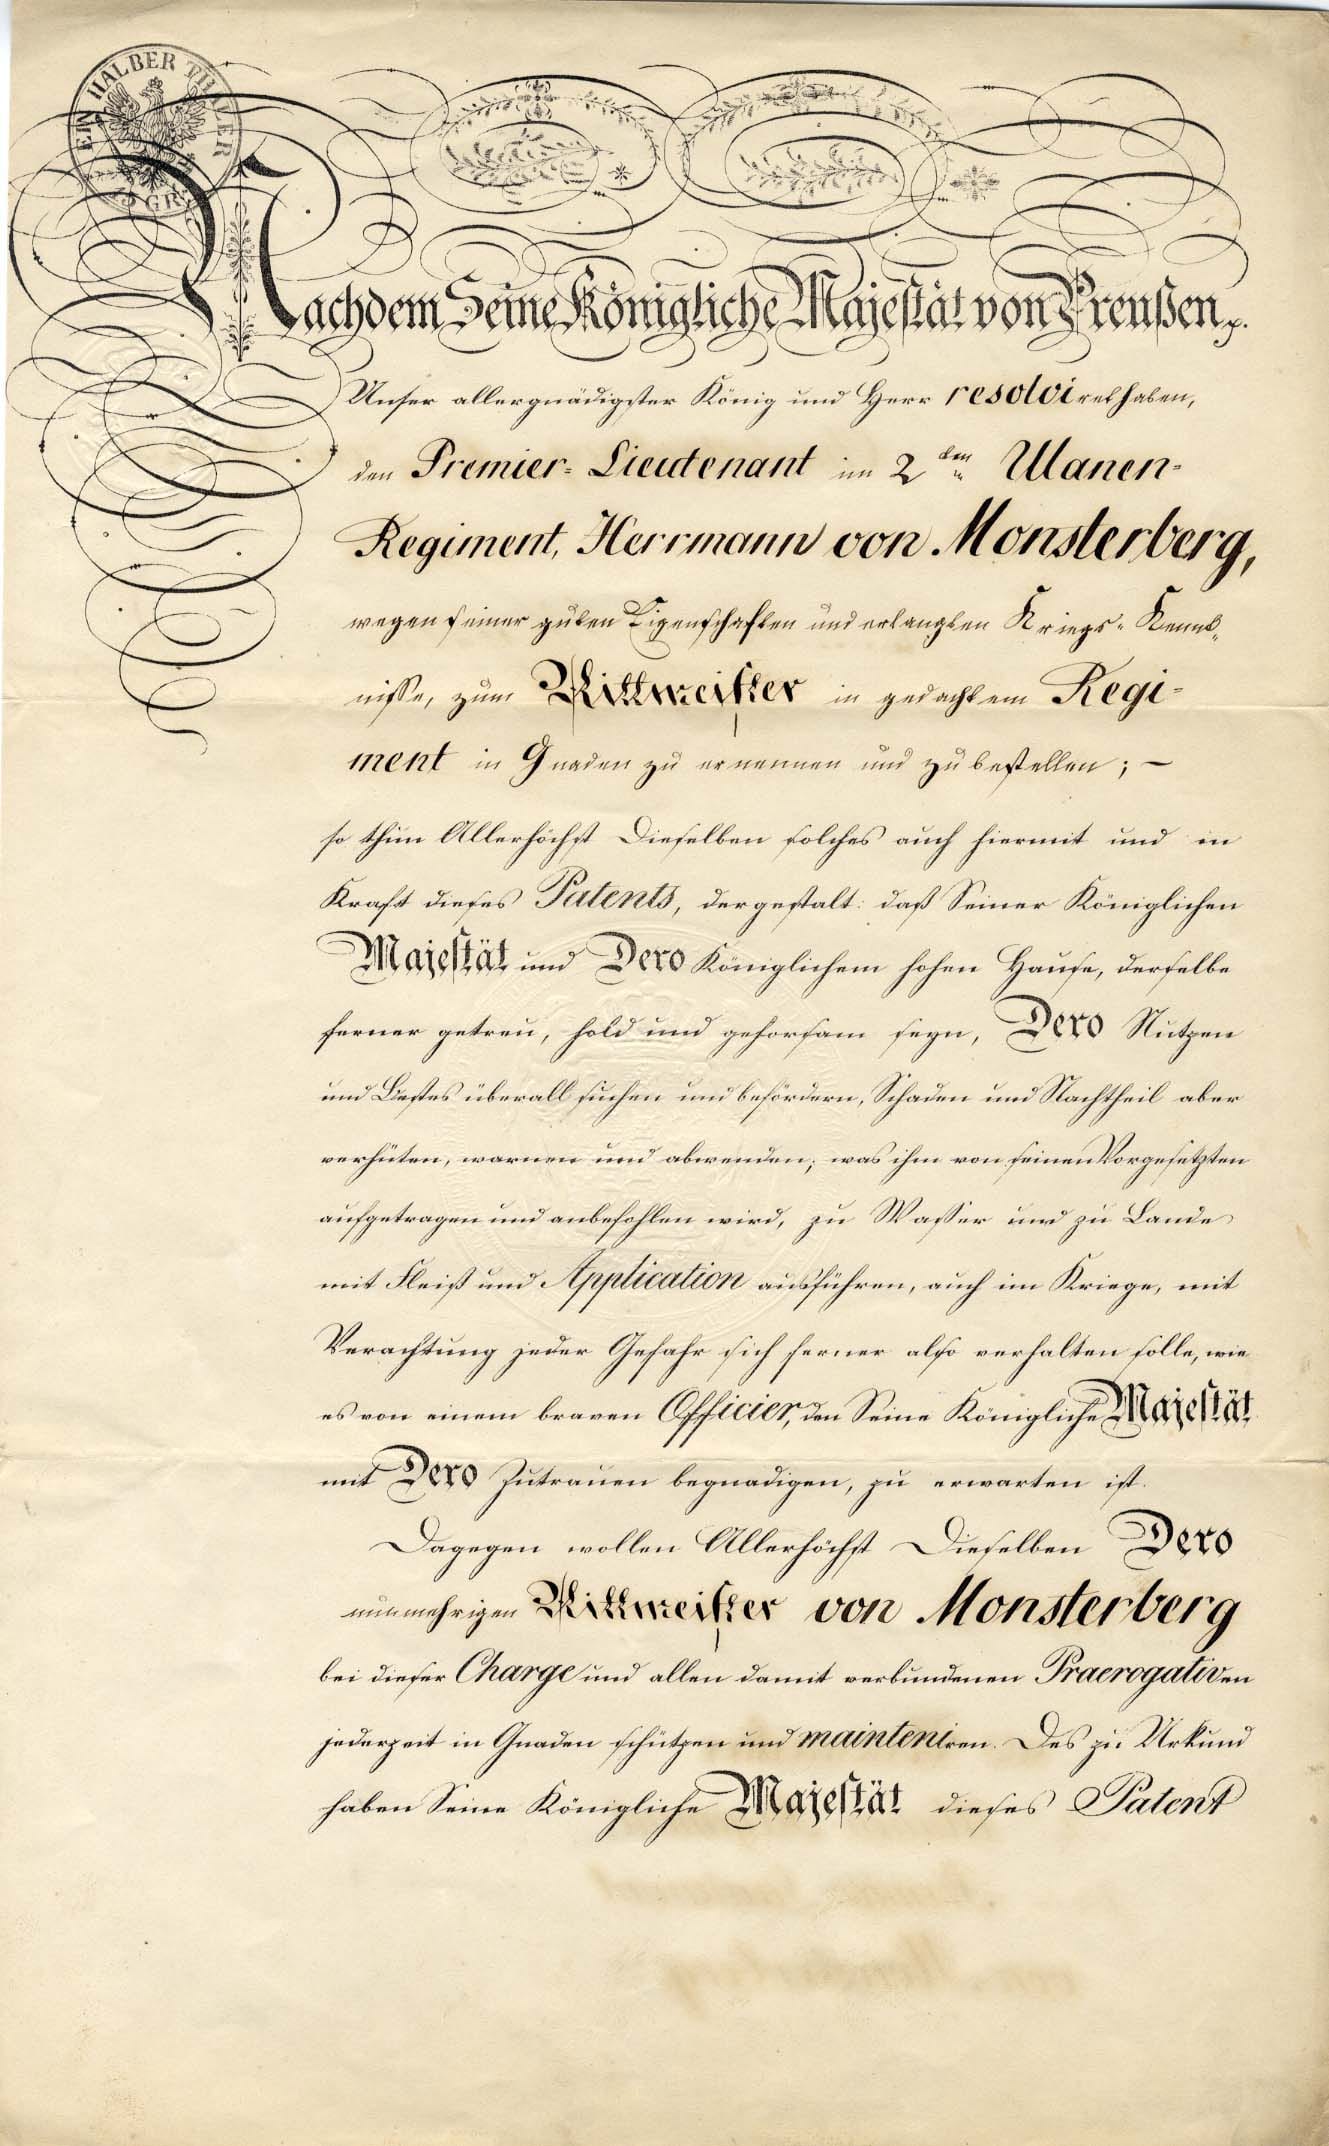 EIN HALBER THALER
15 GR.
Nachdem Seine Königliche Majestät von Preußen p.
Unser allergnädigster König und Herr resolviret haben,
den Premier-Lieutenant im 2ten Ulanen-
Regiment, Herrmann von Monsterberg,
wegen seiner guten Eigenschaften und erlangten Kriegs-Kennt-
nisse, zum Rittmeister in gedachtem Regi-
ment in Gnaden zu ernennen und zu bestellen; —
so thun Allerhöchst Dieselben solches auch hiermit und in
Kraft dieses Patents, dergestalt: daß Seiner Königlichen
Majestät und Dero Königlichem hohen Hause, derselbe
ferner getreu, hold und gehorsam seyn, Dero Nutzen
und Bestes überall suchen und befördern, Schaden und Nachtheil aber
verhüten, warnen und abwenden; was ihm von seinen Vorgesetzten
aufgetragen und anbefohlen wird, zu Wasser und zu Lande
mit Fleiß und Application ausführen, auch im Kriege, mit
Verachtung jeder Gefahr sich ferner also verhalten solle, wie
es von einem braven Officier, den Seine Königliche Majestät
mit Dero Zutrauen begnadigen, zu erwarten ist.
Dagegen wollen Allerhöchst Dieselben Dero
nunmehrigen Rittmeister von Monsterberg
bei dieser Charge und allen damit verbundenen Praerogativen
jederzeit in Gnaden schützen und mainteniren. Des zu Urkund
haben Seine Königliche Majestät dieses Patent